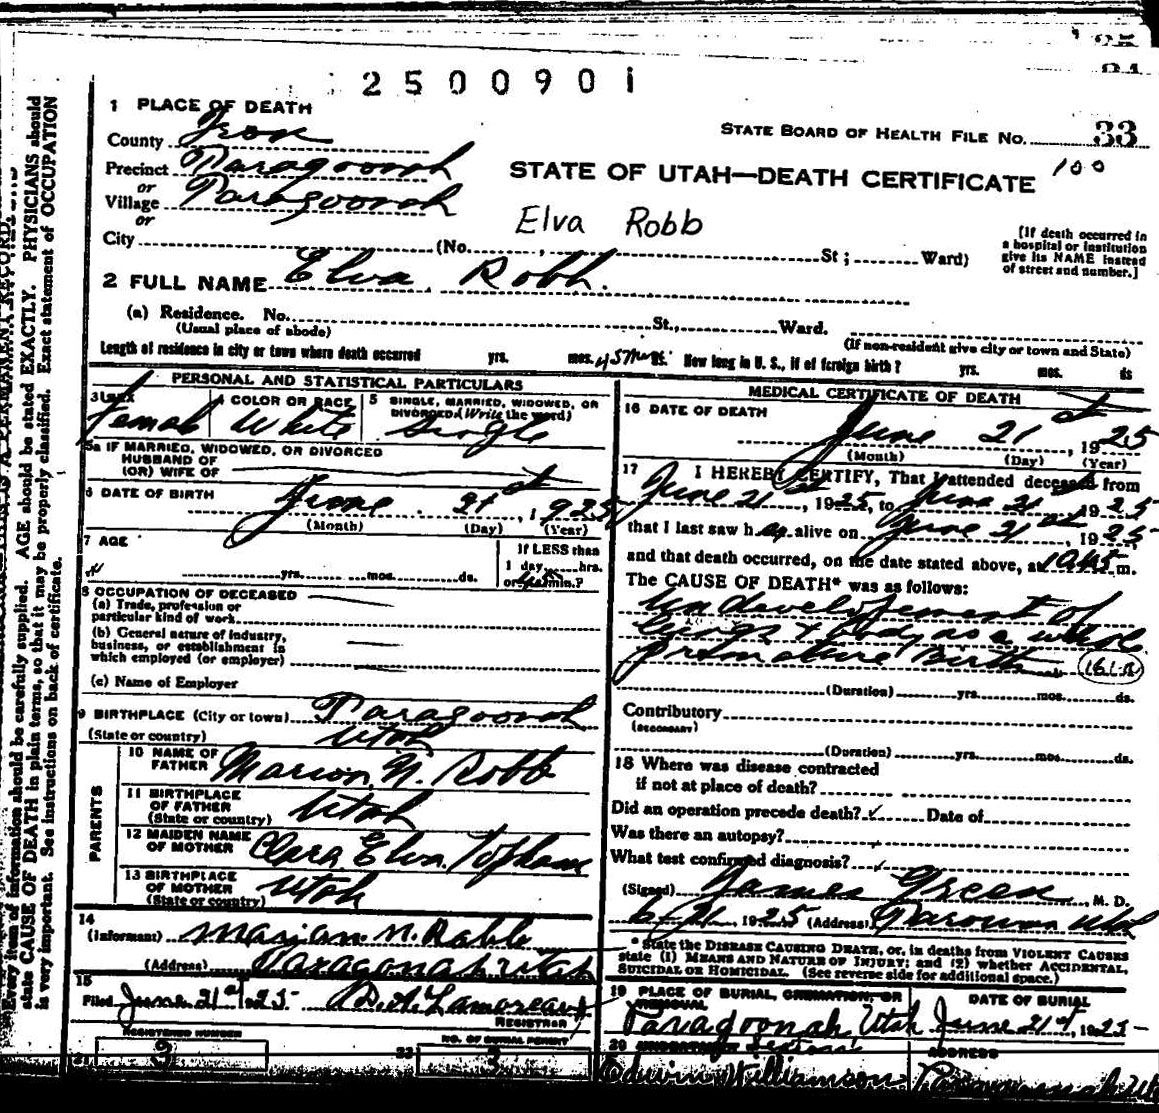 2500901
1 PLACE OF DEATH
County Iron
STATE BOARD OF HEALTH FILE No. 33
Precinct Paragoonah
STATE OF UTAH—DEATH CERTIFICATE 100
or
Village Paragoonah
or
Elva Robb
City (No. St; Ward)
[If death occurred in
a hospital or institution
give its NAME instead
of street and number.]
2 FULL NAME Elva Robb.
(a) Residence. No. St., Ward.
(Usual place of abode)
(If non-resident give city or town and State)
Length of residence in city or town where death occurred yrs. mos. 45 How long in U. S., if of foreign birth? yrs. mos. ds
PERSONAL AND STATISTICAL PARTICULARS
3 SEX
Female
4 COLOR OR RACE
White
5 SINGLE, MARRIED, WIDOWED, OR
DIVORCED (Write the word)
Single
5a IF MARRIED, WIDOWED, OR DIVORCED
HUSBAND OF
(OR) WIFE OF
6 DATE OF BIRTH June 21st, 1925
(Month) (Day) (Year)
7 AGE
yrs. mos. ds.
If LESS than
1 day hrs.
or 45 min.?
8 OCCUPATION OF DECEASED
(a) Trade, profession or
particular kind of work
(b) General nature of industry,
business, or establishment in
which employed (or employer)
(c) Name of Employer
9 BIRTHPLACE (City or town) Paragoonah
(State or country) Utah
PARENTS
10 NAME OF
FATHER Marion N. Robb
11 BIRTHPLACE
OF FATHER
(State or country) Utah
12 MAIDEN NAME
OF MOTHER Clara Elva Topham
13 BIRTHPLACE
OF MOTHER
(State or country) Utah
14
(Informant) Marian N. Robb
(Address) Paragonah Utah
15
Filed June 21st 1925
REGISTRAR
REGISTERED NUMBER
9
NO. OF BURIAL PERMIT
3
MEDICAL CERTIFICATE OF DEATH
16 DATE OF DEATH
June 21st, 1925
(Month) (Day) (Year)
17 I HEREBY CERTIFY, That I attended deceased from
June 21st, 1925, to June 21st, 1925
that I last saw her alive on June 21st, 1925
and that death occurred, on the date stated above, at 1045 m.
The CAUSE OF DEATH* was as follows:
Undevelopement of
Lungs + body as a whole
premature Birth
(Duration) yrs. mos. ds.
Contributory
(SECONDARY)
(Duration) yrs. mos. ds.
18 Where was disease contracted
if not at place of death?
Did an operation precede death? ✓ Date of
Was there an autopsy?
What test confirmed diagnosis? ✓
(Signed) James Green, M. D.
6-21, 1925 (Address) Parowan Utah
* State the DISEASE CAUSING DEATH, or, in deaths from VIOLENT CAUSES
state (1) MEANS AND NATURE OF INJURY; and (2) whether ACCIDENTAL,
SUICIDAL OR HOMICIDAL. (See reverse side for additional space.)
19 PLACE OF BURIAL, CREMATION, OR
REMOVAL
Paragoonah Utah
DATE OF BURIAL
June 21st, 1925
20 UNDERTAKER
Edwin Williamson
ADDRESS
Every item of information should be carefully supplied. AGE should be stated EXACTLY. PHYSICIANS should
state CAUSE OF DEATH in plain terms, so that it may be properly classified. Exact statement of OCCUPATION
is very important. See instructions on back of certificate.